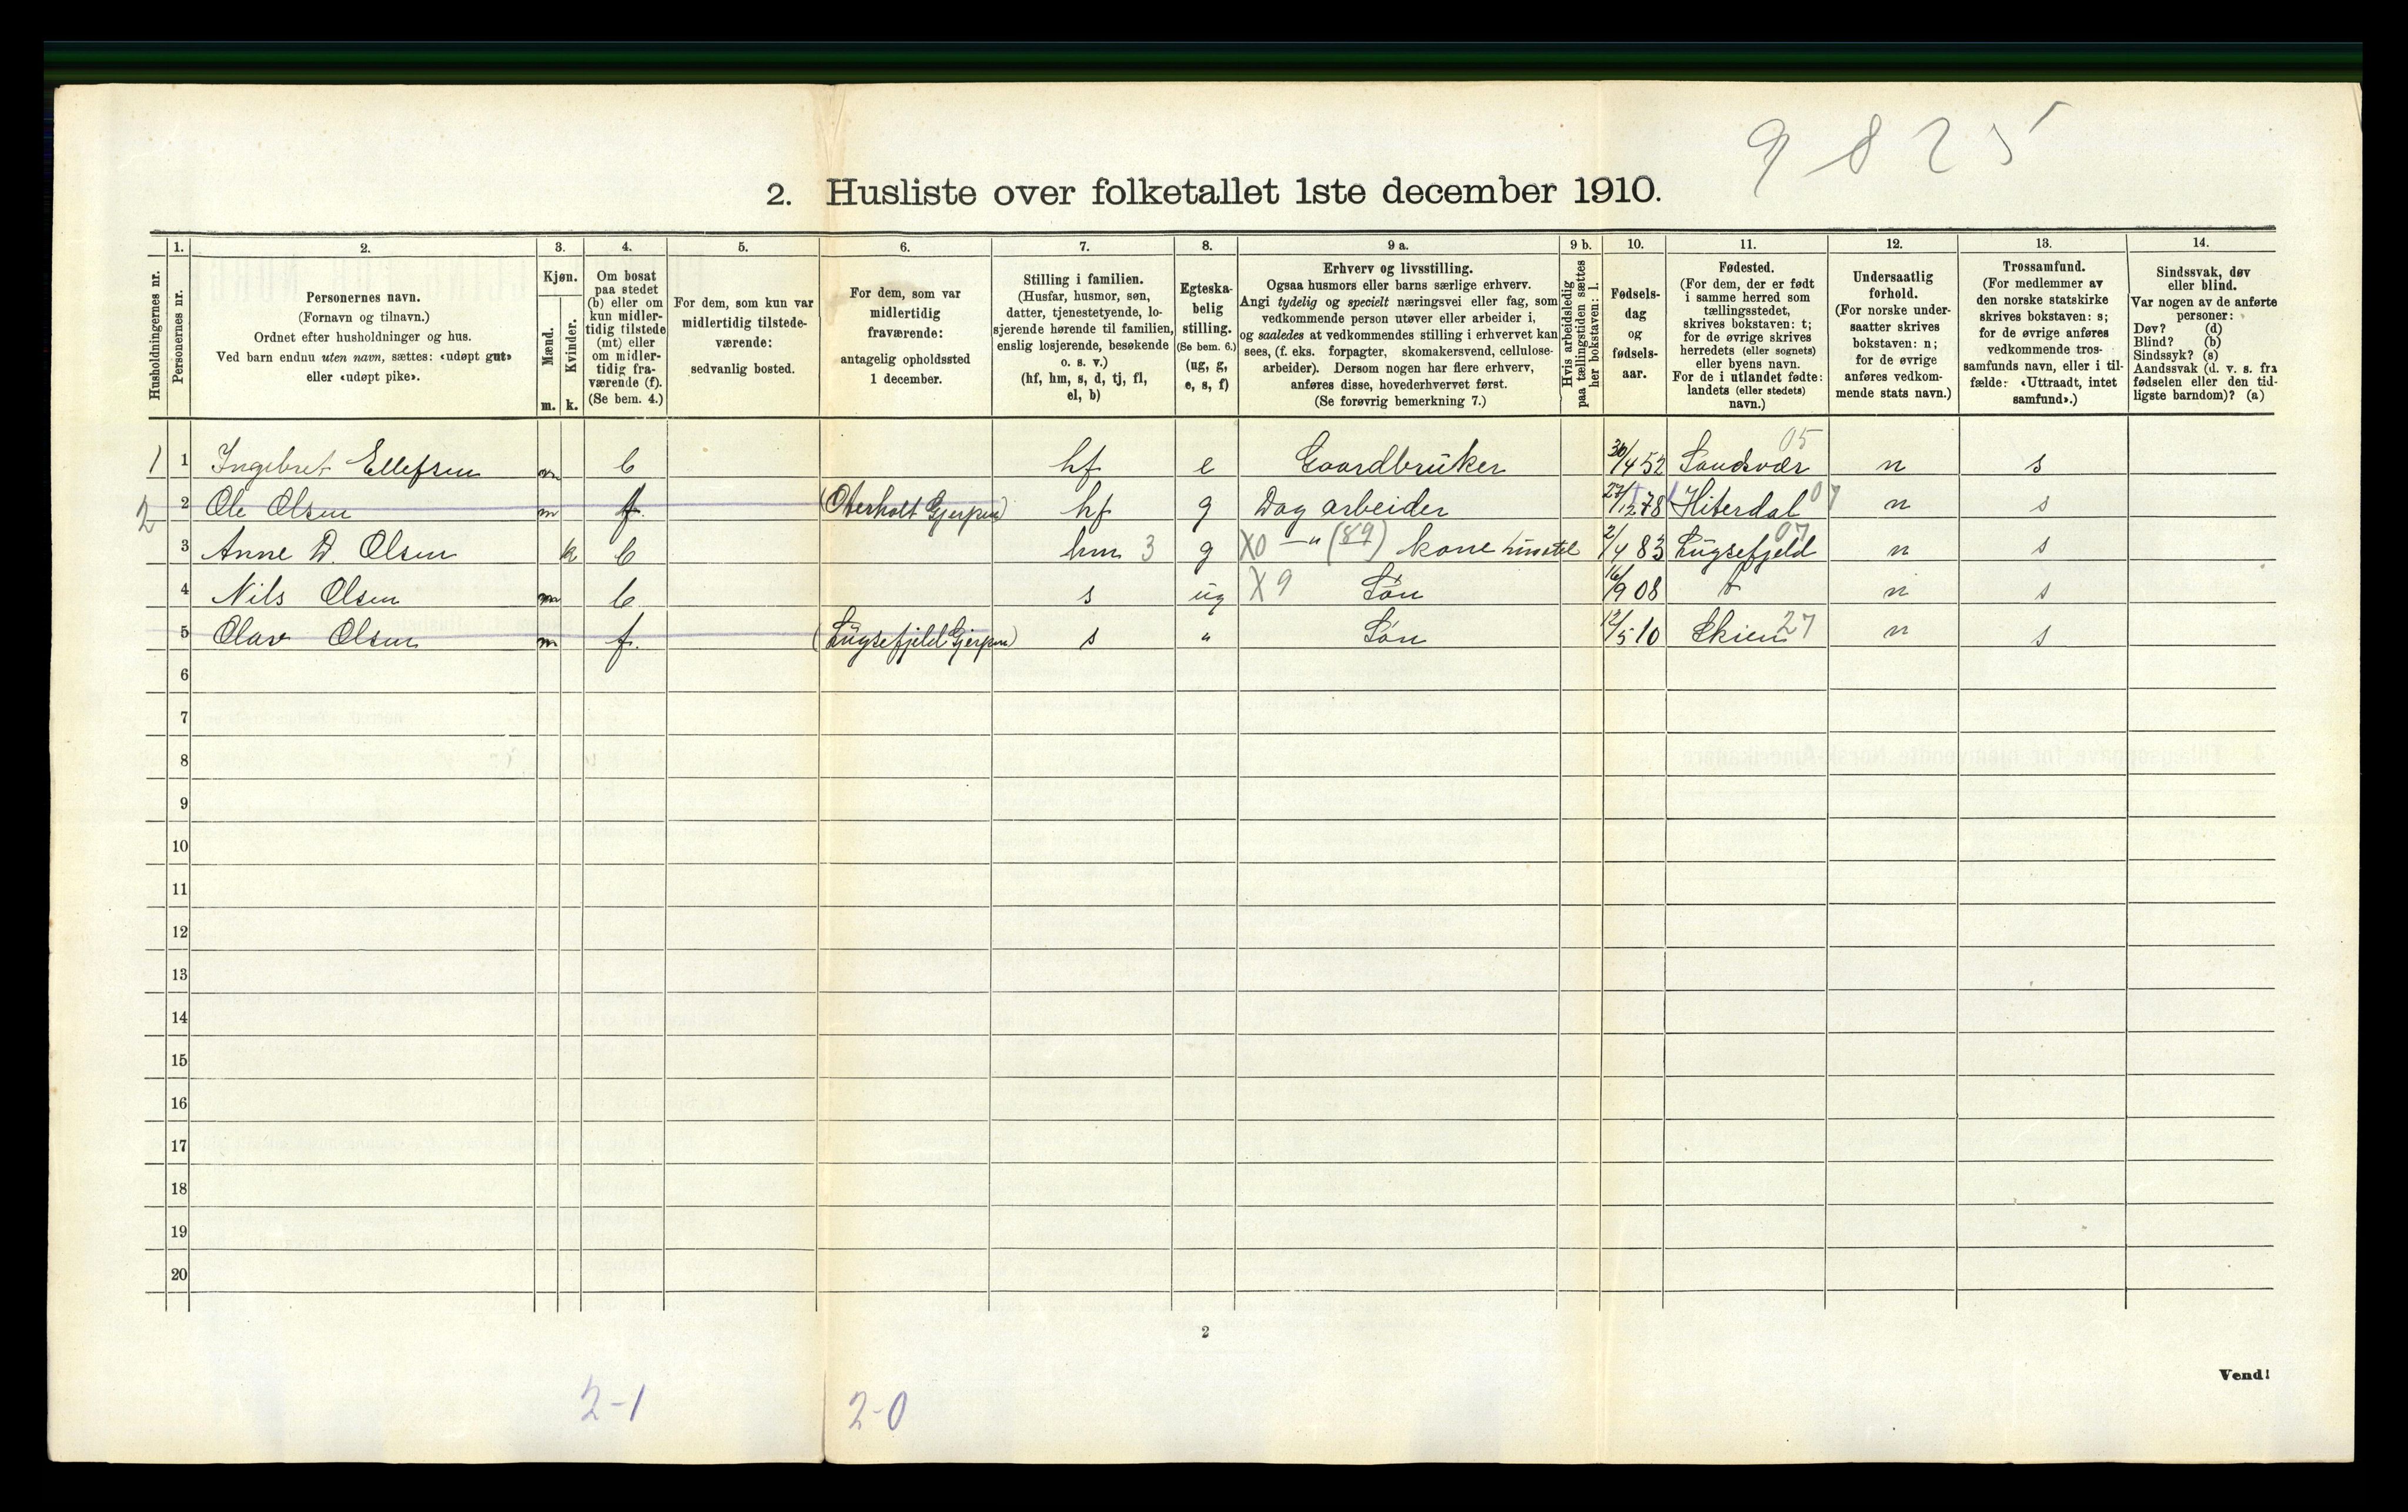 9825
2. Husliste over folketallet 1ste december 1910.
Husholdningernes nr.
1.
Personernes nr.
2.
Personernes navn.
(Fornavn og tilnavn.)
Ordnet efter husholdninger og hus.
Ved barn endnu uten navn, sættes: «udøpt gut»
eller «udøpt pike».
3.
Kjøn.
Mænd. Kvinder.
m. k.
4.
Om bosat
paa stedet
(b) eller om
kun midler-
tidig tilstede
(mt) eller
om midler-
tidig fra-
værende (f).
(Se bem. 4.)
5.
For dem, som kun var
midlertidig tilstede-
værende:
sedvanlig bosted.
6.
For dem, som var
midlertidig
fraværende:
antagelig opholdssted
1 december.
7.
Stilling i familien.
(Husfar, husmor, søn,
datter, tjenestetyende, lo-
sjerende hørende til familien,
enslig losjerende, besøkende
o. s. v.)
(hf, hm, s, d, tj, fl,
el, b)
8.
Egteska-
belig
stilling.
(Se bem. 6.)
(ug, g,
e, s, f)
9 a.
Erhverv og livsstilling.
Ogsaa husmors eller barns særlige erhverv.
Angi tydelig og specielt næringsvei eller fag, som
vedkommende person utøver eller arbeider i,
og saaledes at vedkommendes stilling i erhvervet kan
sees, (f. eks. forpagter, skomakersvend, cellulose-
arbeider). Dersom nogen har flere erhverv,
anføres disse, hovederhvervet først.
(Se forøvrig bemerkning 7.)
9 b.
Hvis arbeidsledig
paa tællingstiden sættes
her bokstaven: l.
10.
Fødsels-
dag
og
fødsels-
aar.
11.
Fødested.
(For dem, der er født
i samme herred som
tællingsstedet,
skrives bokstaven: t;
for de øvrige skrives
herredets (eller sognets)
eller byens navn.
For de i utlandet fødte:
landets (eller stedets)
navn.)
12.
Undersaatlig
forhold.
(For norske under-
saatter skrives
bokstaven: n;
for de øvrige
anføres vedkom-
mende stats navn.)
13.
Trossamfund.
(For medlemmer av
den norske statskirke
skrives bokstaven: s;
for de øvrige anføres
vedkommende tros-
samfunds navn, eller i til-
fælde: «Uttraadt, intet
samfund».)
14.
Sindssvak, døv
eller blind.
Var nogen av de anførte
personer:
Døv? (d)
Blind? (b)
Sindssyk? (s)
Aandssvak (d. v. s. fra
fødselen eller den tid-
ligste barndom)? (a)
1 1 Ingebret Ellefsen m b hf e Gaardbruker 30/4 52 Sandsvær 05 n s
2 2 Ole Olsen m f (Oterholt Gjerpen) hf g Dagarbeider 27/12 78 Hiterdal 07 n s
3 Anne D. Olsen k b hm 3 g X0 —" (89) kone husstel 2/4 83 Lugsefjeld 07 n s
4 Nils Olsen m b s ug X9 Søn 16/9 08 t n s
5 Olav Olsen m f. (Lugsefjeld Gjerpen) s " Søn 12/5 10 Skien 27 n s
6
7
8
9
10
11
12
13
14
15
16
17
18
19
20
2
Vend!
2-1 2-0